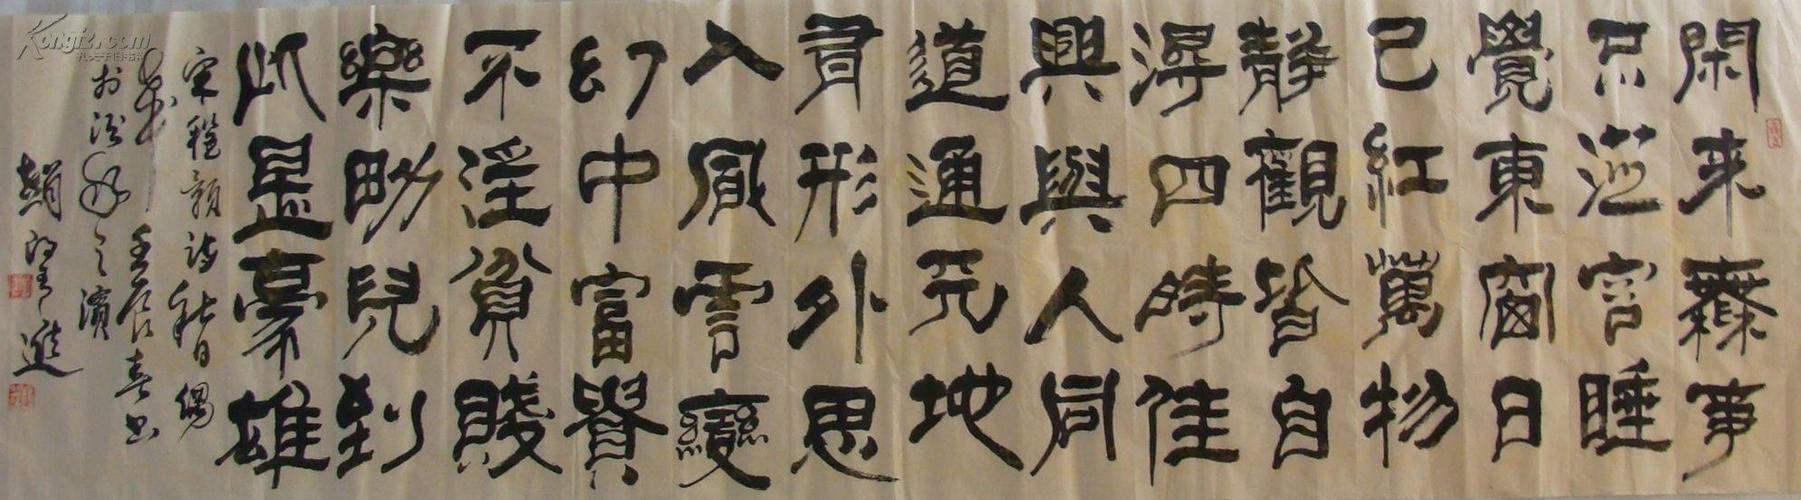 閑來無事
不從容睡
覺東窗日
已紅萬物
靜觀皆自
得四時佳
興與人同
道通天地
有形外思
入風雲變
化中富貴
不淫貧賤
樂男兒到
此是豪雄
宋程顥詩秋日偶
成 壬辰春書
於汾河之濱
趙
Kongfz.com
孔夫子旧书网